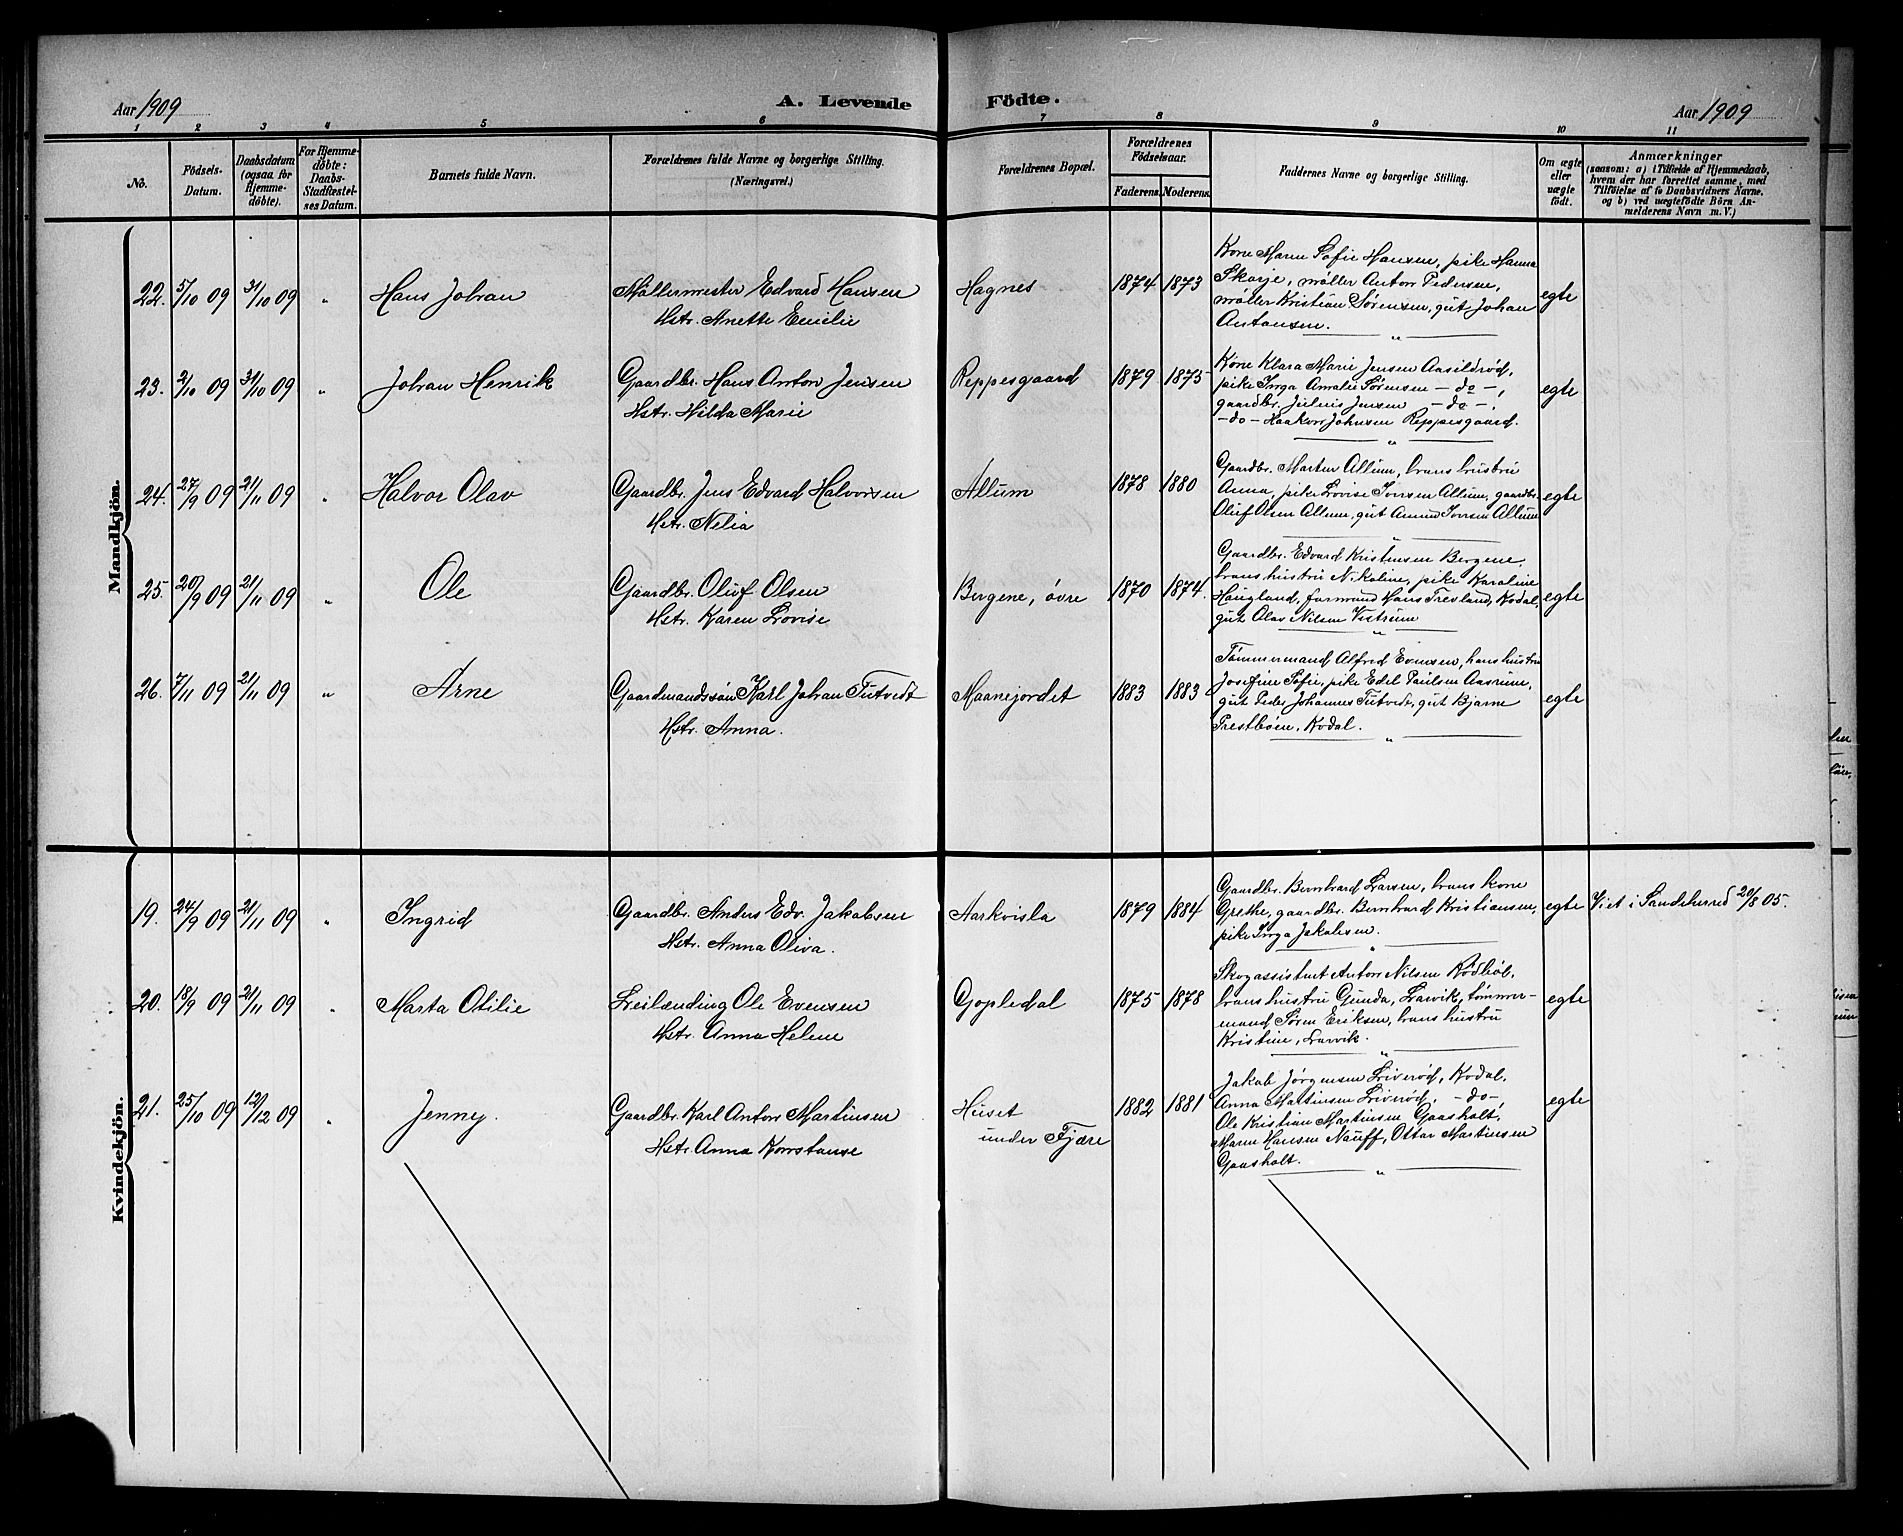 Aar 1909
A. Levende Födte.
Aar 1909
1 2 3 4 5 6 7 8 9 10 11
No.
Födsels-Datum.
Daabsdatum (ogsaa for Hjemme-döbte).
For Hjemme-döbte: Daabs-Stadfæstel-ses Datum.
Barnets fulde Navn.
Forældrenes fulde Navne og borgerlige Stilling.
(Næringsvei.)
Forældrenes Bopæl.
Forældrenes Födselsaar.
Faderens. Moderens.
Faddernes Navne og borgerlige Stilling.
Om ægte eller uægte födt.
Anmærkninger
(saasom: a) i Tilfælde af Hjemmedaab,
hvem der har forrettet samme, med
Tilföielse af to Daabsvidners Navne,
og b) ved uægtefödte Börn An-
melderens Navn m. V.)
Mandkjön.
22. 5/10 09 31/10 09 " Hans Johan Møllermester Edvard Hansen Hagnes 1874 1873 egte
Hstr. Anette Emilie
Kone Maren Sofie Hansen, pike Hanna
Skorje, møller Anton Pedersen,
møller Kristian Sørensen, gut Johan
Antonsen.
23. 2/10 09 31/10 09 " Johan Henrik Gaardbr. Hans Anton Jensen Reppesgaard 1879 1875 egte
Hstr. Hilda Marie
Kone Klara Marie Jensen Aasildrød,
pike Inga Amalie Sørensen - do -,
gaardbr. Julius Jensen - do -,
- do - Haakon Johnsen Reppesgaard.
24. 27/9 09 21/11 09 " Halvor Olav Gaardbr. Jens Edvard Halvorsen Allum 1878 1880 egte
Hstr. Nelia
Gaardbr. Marten Allum, hans hustru
Anna, pike Lovise Iversen Allum, gaardbr.
Oluf Olsen Allum, gut Iversen Allum
25. 20/9 09 21/11 09 " Ole Gaardbr. Oluf Olsen Bergene, øvre 1870 1874. egte
Hstr. Karen Lovise
Gaardbr. Edvard Kristensen Bergene,
hans hustru Nikoline, pike Karoline
Haugland, formand Hans Trevland, Kodal,
gut Olav Nilsen Vestrum
26. 7/11 09 21/11 09 " Arne Gaardmandssøn Karl Johan Tutvedt Maanejordet 1883 1883 egte
Hstr. Anna.
Tømmermand Alfred Evensen, hans hustru
Josefine Sofie, pike Edel Paulsen Aasrum,
gut Peder Johannes Tutvedt, gut Bjarne
Prestbøen, Kodal.
Kvindekjön.
19. 24/9 09 21/11 09 " Ingrid Gaardbr. Anders Edv. Jakobsen Aarkvisla 1879 1884 egte Viet i Sandeherred 20/8 05.
Hstr. Anna Oliva.
Gaardbr. Bernhard Larsen, hans kone
Grethe, gaardbr. Bernhard Kristiansen,
pike Inga Jakobsen.
20. 18/9 09 21/11 09 " Marta Otilie Leilænding Ole Evensen Gopledal 1875 1878 egte
Hstr. Anna Helene
Skogassistent Anton Nilsen Rødbøl,
hans hustru Gunda, Larvik, tømmer-
mand Søren Eriksen, hans hustru
Kristine, Larvik.
21. 25/10 09 12/12 09 " Jenny. Gaardbr. Karl Anton Martinsen Huset 1882 1881 egte
Hstr. Anna Konstanse under Fjære
Jakob Jørgensen Liverød, Kodal,
Anna Martinsen Liverød, - do -,
Ole Kristian Martinsen Gaasholt,
Maren Hansen Nauff, Ottar Martinsen
Gaasholt.